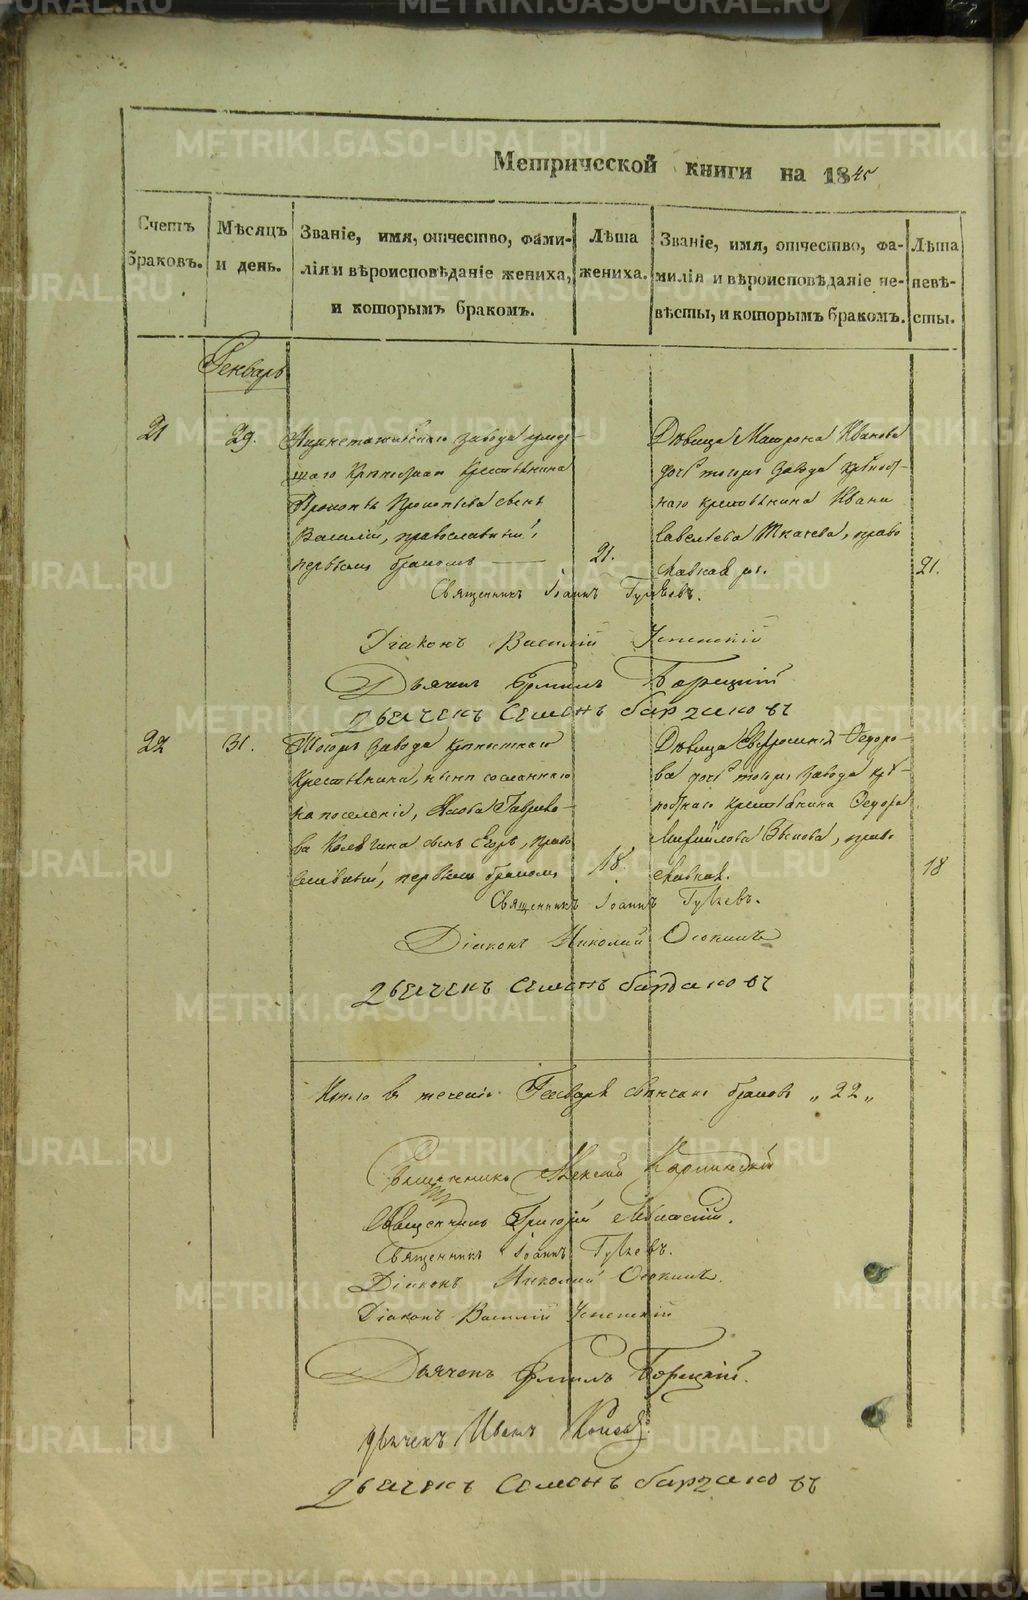 Метрической книги на 1845
Счетъ браковъ.
Мѣсяцъ и день.
Званіе, имя, отчество, фами-
лія и вѣроисповѣданіе жениха,
и которымъ бракомъ.
Лѣта
жениха.
Званіе, имя, отчество, фа-
милія и вѣроисповѣданіе не-
вѣсты, и которымъ бракомъ.
Лѣта
невѣ-
сты.
Генварь
21
29.
завода
щаго крестьянина
Прокопьева сынъ
Василій, православный,
первымъ бракомъ
21.
Дѣвица Матрона Иванова
дочь тогожъ завода крѣпост-
наго крестьянина Ивана
Савельева Ткачева, право
славная
21.
Священникъ Іоаннъ
Діаконъ Василій Успенскій
Дьячекъ Ермилъ Борецкій
дьячекъ Семенъ
22
31.
Тогожъ завода крѣпостнаго
крестьянина, нынѣ сосланнаго
на поселеніе,
сынъ Егоръ, право
славный, первымъ бракомъ
18.
Дѣвица Ѳедоро-
ва дочь тогожъ завода крѣ-
постнаго крестьянина Ѳедора
Михайлова право
славная.
18
Священникъ Іоаннъ
Діаконъ Николай Осокинъ
дьячекъ Семенъ
Итого въ теченіе Генваря вѣнчано браковъ „22„
Священникъ Алексій Карпинскій
Священникъ Григорій
Священникъ Іоаннъ
Діаконъ Николай Осокинъ.
Діаконъ Василій Успенскій
Дьячекъ Ермилъ Борецкій.
дьячекъ Иванъ Поповъ.
дьячекъ Семенъ
METRIKI.GASO-URAL.RU